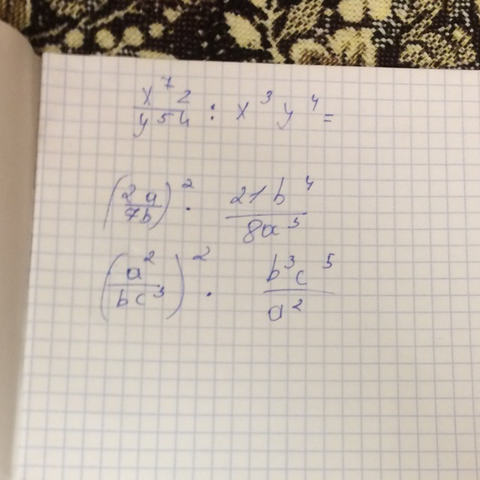 x⁷2/y54 : x³y⁴=
(2a/7b)² · 21b⁴/8a³
(a²/bc³)² · b³c⁵/a²